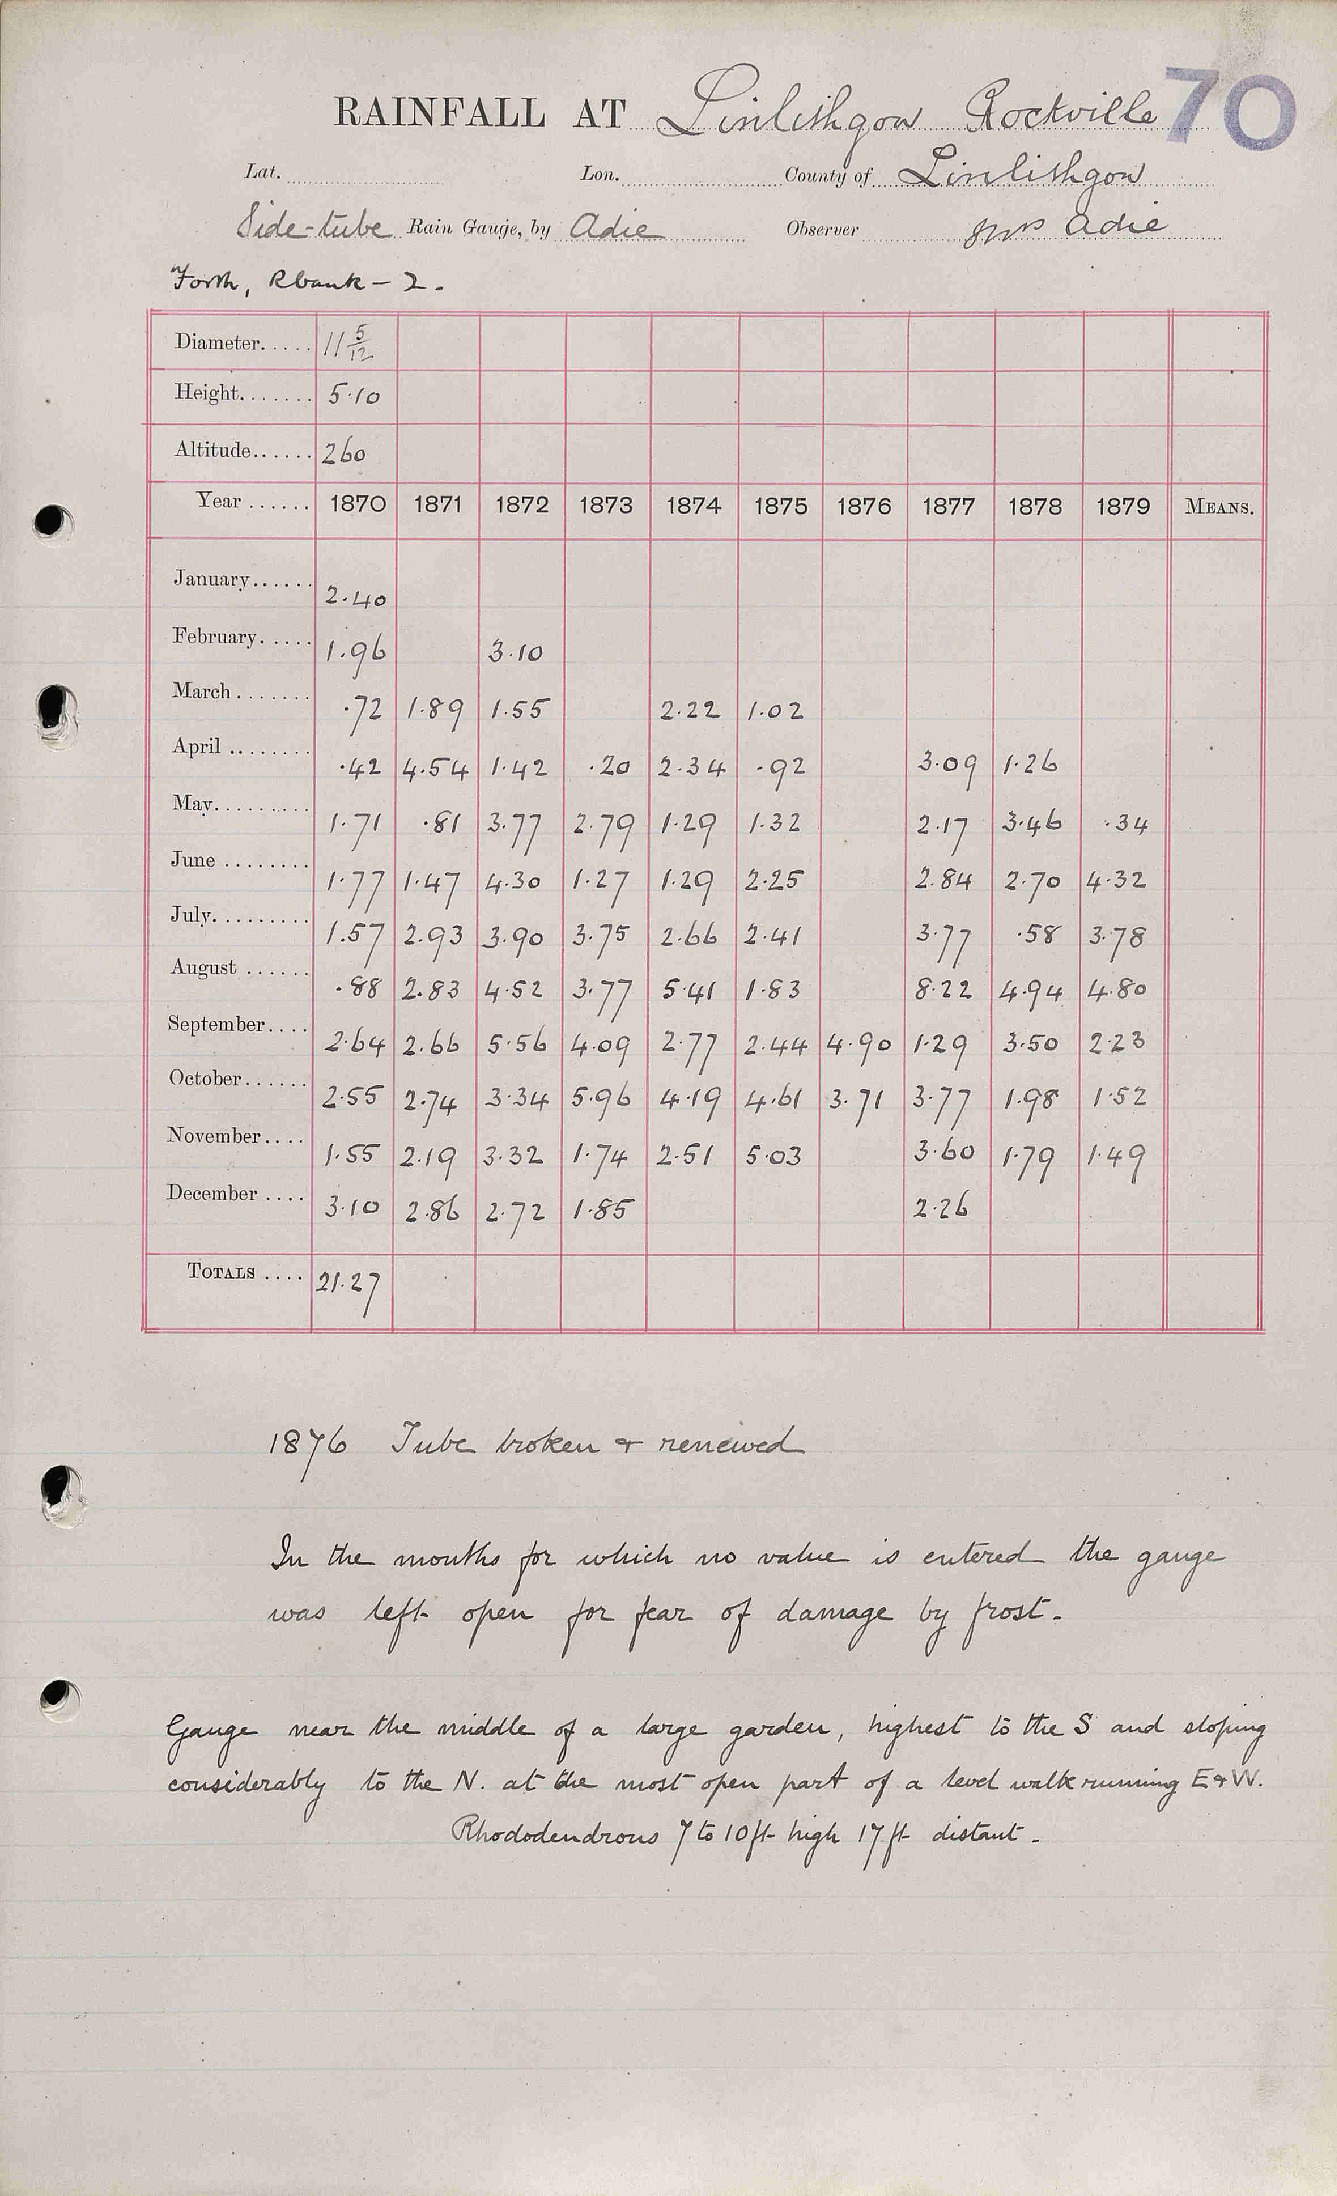 RAINFALL AT Linlithgow Rockville 70
Lat. Lon. County of Linlithgow
Side-tube Rain Gauge, by Adie Observer Mrs Adie
Forth, Rbank - 2.
Diameter..... 11 5/12
Height....... 5.10
Altitude...... 260
Year ...... 1870 1871 1872 1873 1874 1875 1876 1877 1878 1879 MEANS.
January...... 2.40
February..... 1.96 3.10
March ....... .72 1.89 1.55 2.22 1.02
April ........ .42 4.54 1.42 .20 2.34 .92 3.09 1.26
May.......... 1.71 .81 3.77 2.79 1.29 1.32 2.17 3.46 .34
June ........ 1.77 1.47 4.30 1.27 1.29 2.25 2.84 2.70 4.32
July.......... 1.57 2.93 3.90 3.75 2.66 2.41 3.77 .58 3.78
August ...... .88 2.83 4.52 3.77 5.41 1.83 8.22 4.94 4.80
September.... 2.64 2.66 5.56 4.09 2.77 2.44 4.90 1.29 3.50 2.23
October...... 2.55 2.74 3.34 5.96 4.19 4.61 3.71 3.77 1.98 1.52
November.... 1.55 2.19 3.32 1.74 2.51 5.03 3.60 1.79 1.49
December .... 3.10 2.86 2.72 1.85 2.26
TOTALS .... 21.27
1876 Tube broken & renewed
In the months for which no value is entered the gauge
was left open for fear of damage by frost.
Gauge near the middle of a large garden, highest to the S and sloping
considerably to the N. at the most open part of a level walk running E & W.
Rhododendrons 7 to 10 ft high 17 ft distant.